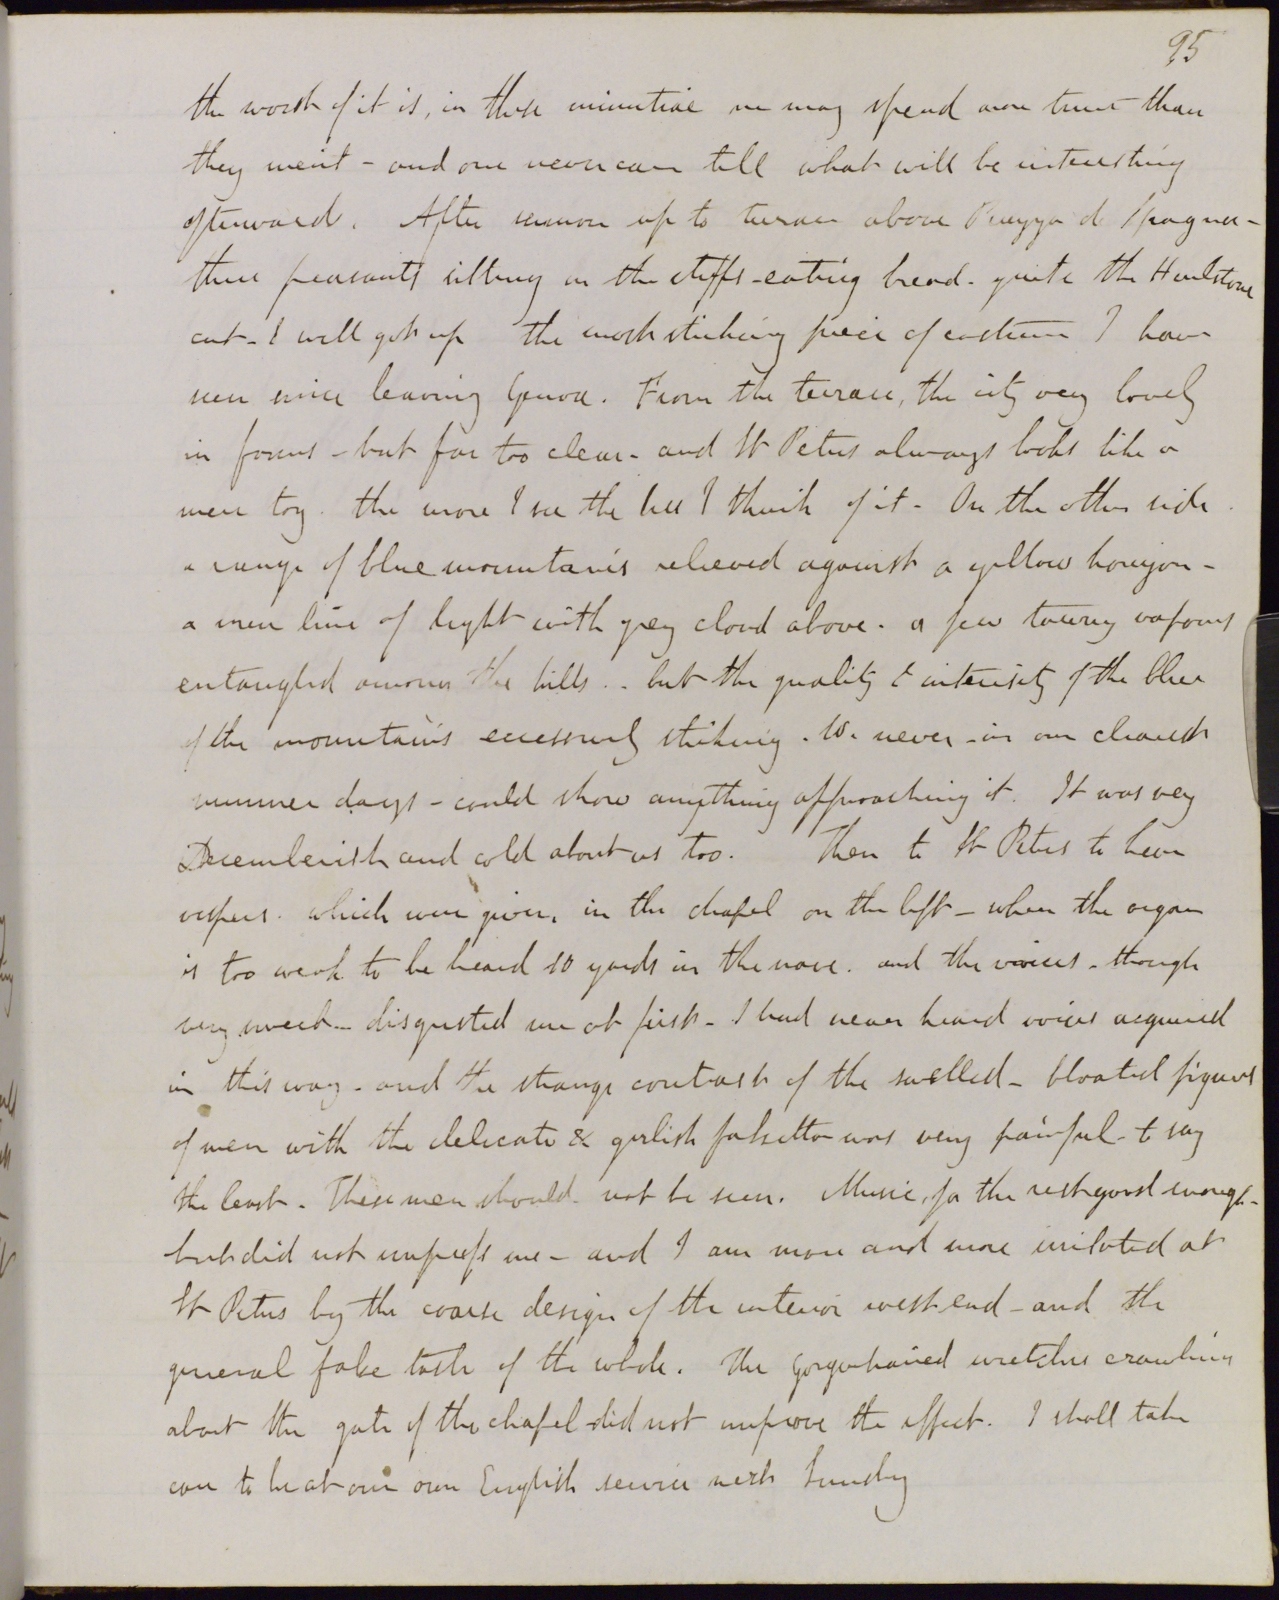 95
the worst of it is, in these minutiae we may spend more time than
they merit - and one never can tell what will be interesting
afterward. After sermon up to terrace above Piazza di Spagna -
three peasants sitting on the steps - eating bread - quite the
cut - & well got up the most striking piece of costume I have
seen since leaving Genoa. From the terrace, the city very lovely
in forms - but far too clear - and St Peters always looks like a
mere toy. the more I see the less I think of it - On the other side
a range of blue mountains relieved against a yellow horizon -
a mere line of light with grey cloud above - a few tawny vapours
entangled among the hills - but the quality & intensity of the blue
of the mountains excessively striking. We never - in our clearest
summer days - could show anything approaching it. It was very
Decemberish and cold about us too. Then to St Peters to hear
vespers. which were given, in the chapel on the left - where the organ
is too weak to be heard 10 yards in the nave. and the voices - though
very sweet - disgusted me at first - I had never heard voices acquired
in this way - and the strange contrast of the swelled - bloated figures
of men with the delicate & girlish falsetto was very painful - to say
the least. These men should not be seen. Music, for the rest good enough -
but did not impress me - and I am more and more irritated at
St Peters by the coarse design of the interior west end - and the
general false taste of the whole. The wretches crawling
about the gate of the chapel did not improve the effect. I shall take
care to be at our own English service next Sunday